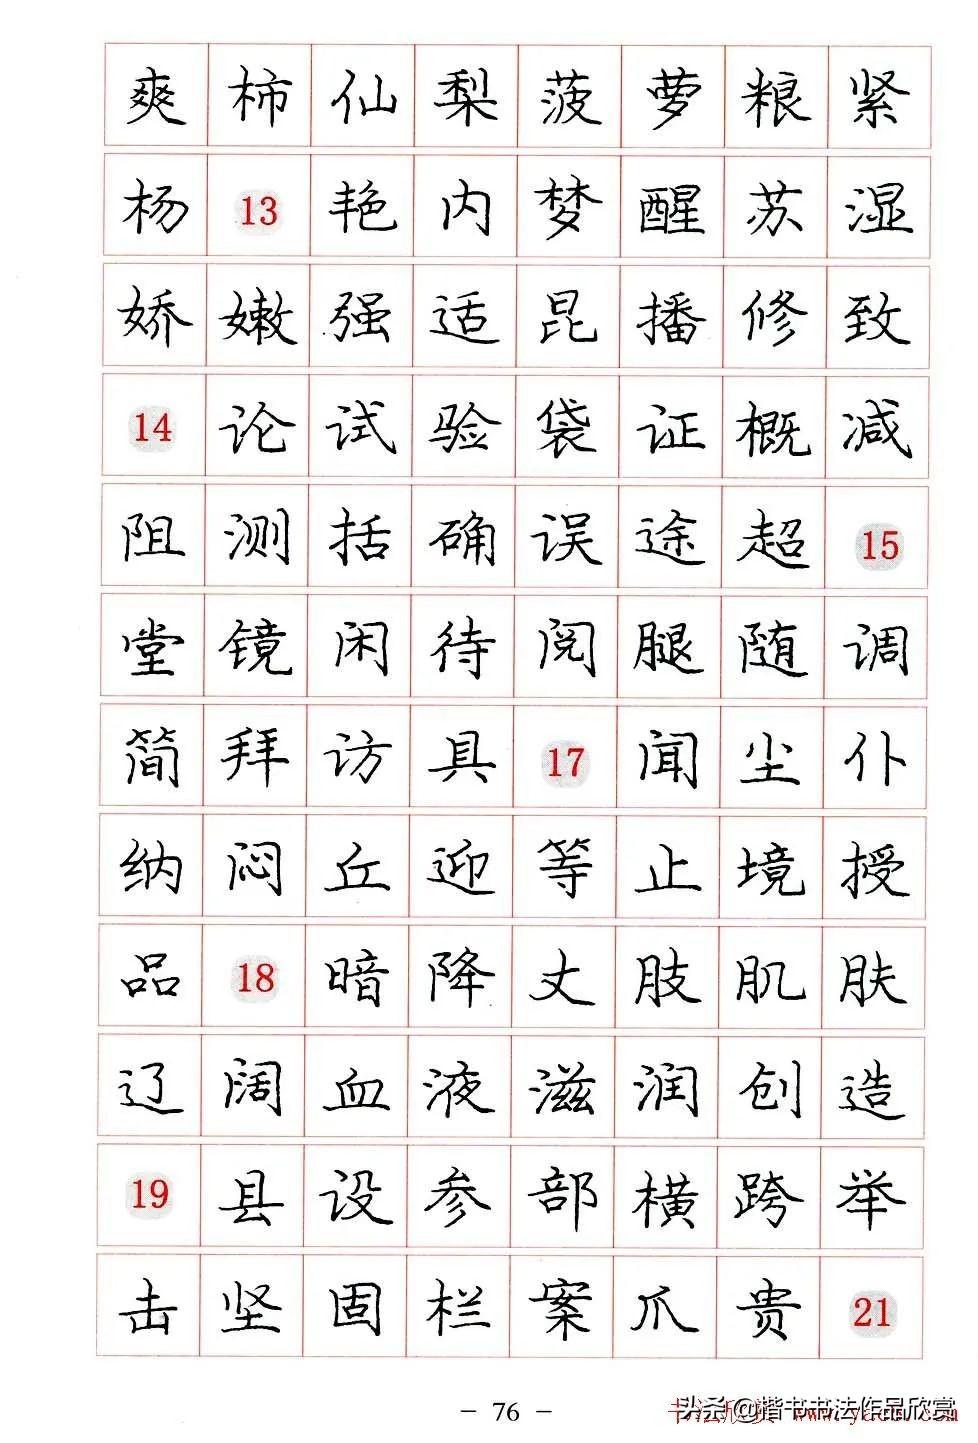 爽 柿 仙 梨 菠 萝 粮 紧
杨 13 艳 内 梦 醒 苏 湿
娇 嫩 强 适 昆 播 修 致
14 论 试 验 袋 证 概 减
阻 测 括 确 误 途 超 15
堂 镜 闲 待 阅 腿 随 调
简 拜 访 具 17 闻 尘 仆
纳 闷 丘 迎 等 止 境 授
品 18 暗 降 丈 肢 肌 肤
辽 阔 血 液 滋 润 创 造
19 县 设 参 部 横 跨 举
击 坚 固 栏 案 爪 贵 21
- 76 -
头条@楷书书法作品欣赏